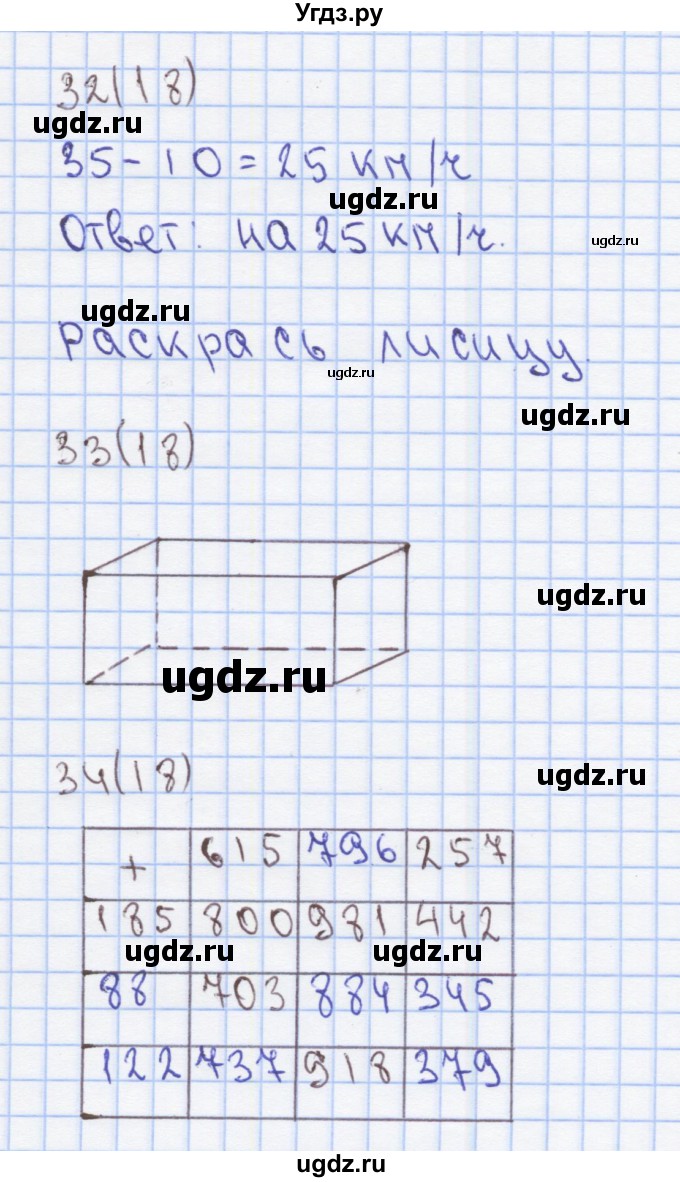 Угдз.ру
32(18)
ugdz.ru
35-10=25 км/ч
ugdz.ru
Ответ: на 25 км/ч.
ugdz.ru
ugdz.ru
Раскрась лисицу.
ugdz.ru
ugdz.ru
33(18)
ugdz.ru
ugdz.ru
34(18)
ugdz.ru
+ 615 796 257
185 800 981 442
ugdz.ru ugdz.ru
88 703 884 345
122 737 918 379
ugdz.ru